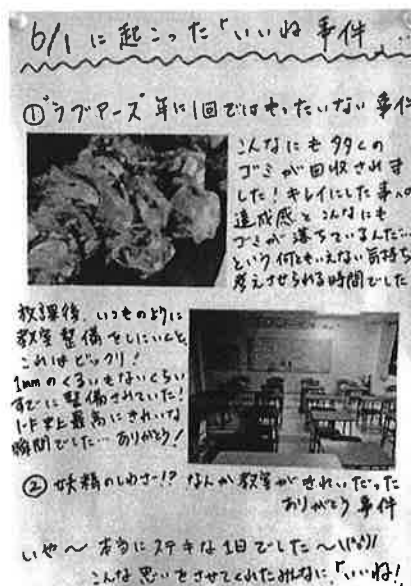 6/1 に起こった「いいね事件...
①"ラブアース"年に1回ではもったいない事件
こんなにも多くの
ゴミが回収されま
した!キレイにした事への
達成感とこんなにも
ゴミが落ちているんだ…
という何ともいえない気持ち
考えさせられる時間でした
放課後、いつものように
教室整備をしにいくと、
これはビックリ!
1mmのくるいもないくらい
すでに整備されていた!
1-F史上最高にきれいな
瞬間でした…ありがとう!
②妖精のしわざー!?なんか教室がきれいだった
ありがとう事件
いや〜本当にステキな1日でした〜\(^o^)/
こんな思いをさせてくれたみんなに、「いいね!